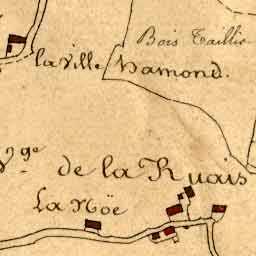 Bois Taillis
la Ville Hamond.
Vge de la Ruais
La Nöe